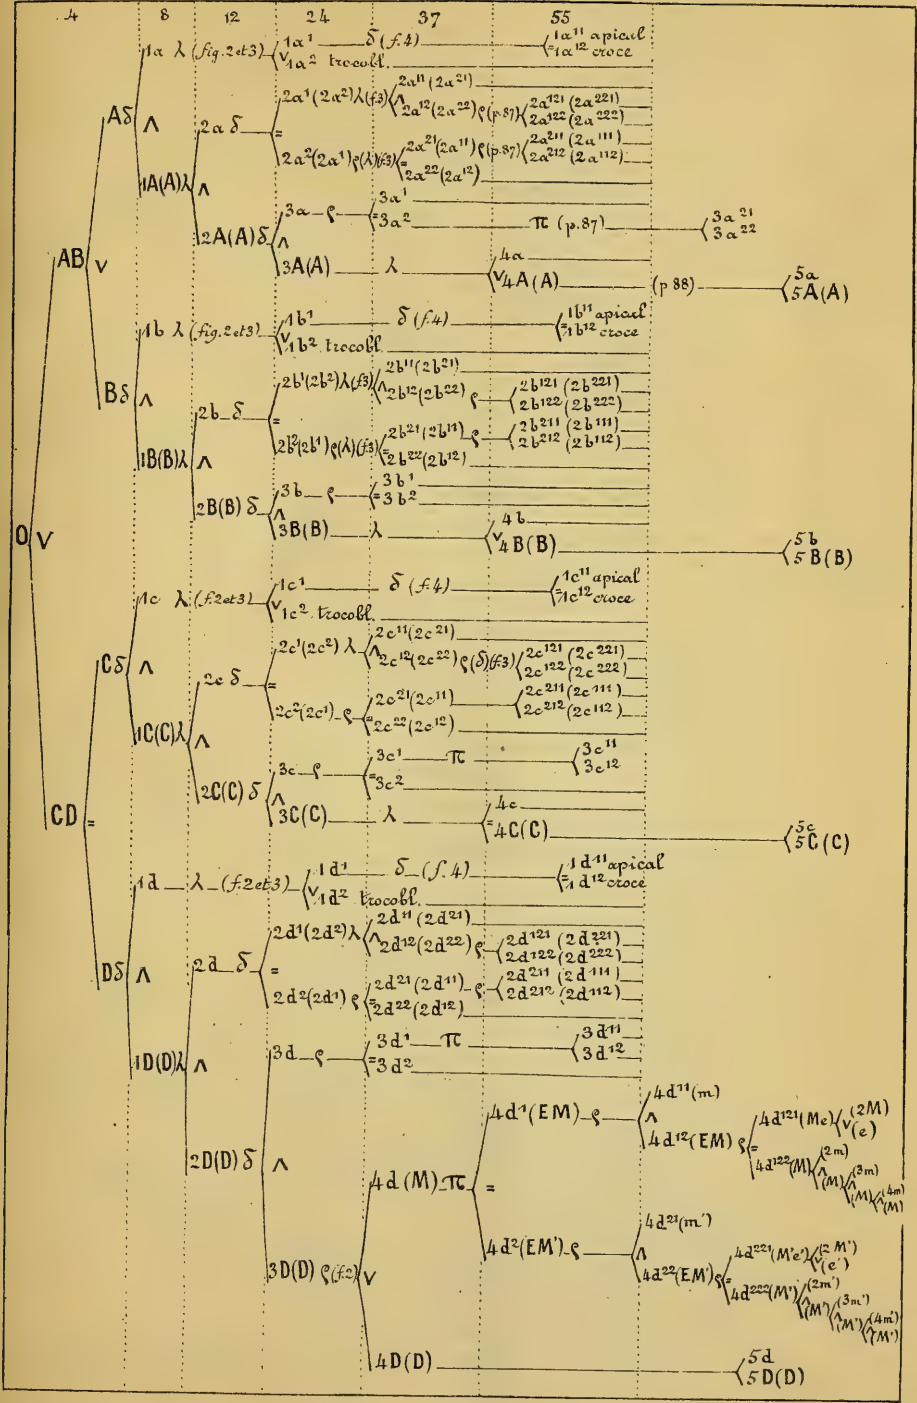 4 8 12 24 37 55
1a λ (fig. 2 et 3)
1a¹ δ (f. 4)
1a¹¹ apical
1a¹² croce
v 1a² trocobl.
Aδ Λ
2a δ
2a¹ (2a²) λ (f3)
2a¹¹ (2a²¹)
Λ
2a¹² (2a²²) ρ (p. 87)
2a¹²¹ (2a²²¹)
2a¹²² (2a²²²)
=
2a² (2a¹) ρ (λ) (f.3)
2a²¹ (2a¹¹) ρ (p. 87)
2a²¹¹ (2a¹¹¹)
2a²¹² (2a¹¹²)
= 2a²² (2a¹²)
1A(A)λ Λ
3a ρ
3a¹
= 3a² π (p. 87)
3a²¹
3a²²
2A(A) δ Λ
AB v
3A(A) λ
4a
v 4A(A) (p 88)
5a
5A(A)
1b λ (fig. 2 et 3)
1b¹ δ (f. 4)
1b¹¹ apical
= 1b¹² croce
v 1b² trocobl.
Bδ Λ
2b δ
2b¹ (2b²) λ (f3)
2b¹¹ (2b²¹)
Λ 2b¹² (2b²²) ρ
2b¹²¹ (2b²²¹)
2b¹²² (2b²²²)
=
2b² (2b¹) ρ (λ) (f.3)
2b²¹ (2b¹¹) ρ
2b²¹¹ (2b¹¹¹)
2b²¹² (2b¹¹²)
= 2b²² (2b¹²)
1B(B)λ Λ
3b ρ
3b¹
= 3b²
2B(B) δ Λ
3B(B) λ
4b
v 4B(B)
5b
5B(B)
O v
1c λ (f. 2 et 3)
1c¹ δ (f. 4)
1c¹¹ apical
= 1c¹² croce
v 1c² trocobl.
Cδ Λ
2c δ
2c¹ (2c²) λ
2c¹¹ (2c²¹)
Λ 2c¹² (2c²²) ρ (δ) (f.3)
2c¹²¹ (2c²²¹)
2c¹²² (2c²²²)
=
2c² (2c¹) ρ
2c²¹ (2c¹¹)
2c²¹¹ (2c¹¹¹)
2c²¹² (2c¹¹²)
= 2c²² (2c¹²)
1C(C)λ Λ
3c ρ
3c¹ π
3c¹¹
3c¹²
= 3c²
2C(C) δ Λ
3C(C) λ
4c
= 4C(C)
5c
5C(C)
CD =
1d λ (f. 2 et 3)
1d¹ δ (f. 4)
1d¹¹ apical
= 1d¹² croce
v 1d² trocobl.
Dδ Λ
2d δ
2d¹ (2d²) λ
2d¹¹ (2d²¹)
Λ 2d¹² (2d²²) ρ
2d¹²¹ (2d²²¹)
2d¹²² (2d²²²)
=
2d² (2d¹) ρ
2d²¹ (2d¹¹) ρ
2d²¹¹ (2d¹¹¹)
2d²¹² (2d¹¹²)
= 2d²² (2d¹²)
1D(D)λ Λ
3d ρ
3d¹ π
3d¹¹
3d¹²
= 3d²
2D(D) δ Λ
4d (M) π =
4d¹ (EM) ρ
4d¹¹ (m)
Λ
4d¹² (EM) ρ =
4d¹²¹ (Me)
(2M)
v (e)
4d¹²² (M)
(2m)
Λ (M)
(3m)
Λ (M)
(4m)
Λ (M)
4d² (EM') ρ
4d²¹ (m')
Λ
4d²² (EM') ρ =
4d²²¹ (M'e')
(2M')
v (e')
4d²²² (M')
(2m')
Λ (M')
(3m')
Λ (M')
(4m')
Λ (M')
3D(D) ρ (f.2) v
4D(D)
5d
5D(D)